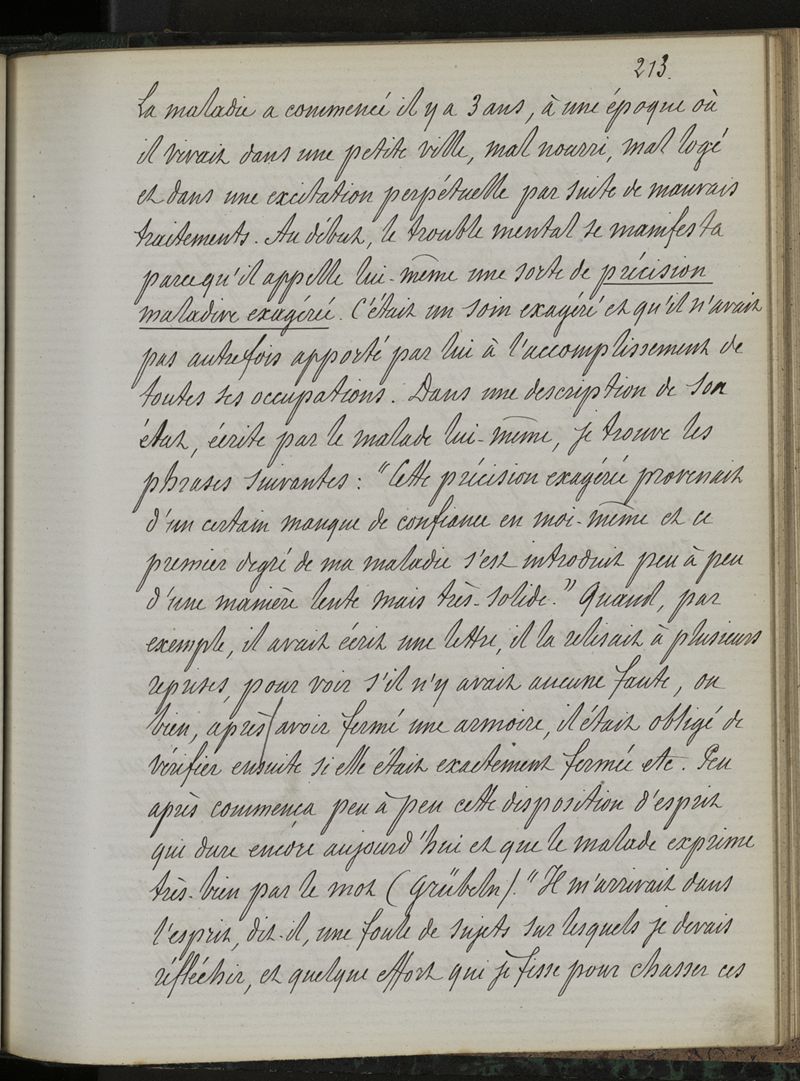 213.
La maladie a commencé il y a 3 ans, à une époque où
il vivait dans une petite ville, mal nourri, mal logé
et dans une excitation perpétuelle par suite de mauvais
traitements. Au début, le trouble mental se manifesta
parcequ'il appelle lui-même une sorte de précision
maladive exagérée. C'était un soin exagéré et qu'il n'avait
pas autrefois apporté par lui à l'accomplissement de
toutes ses occupations. Dans une description de son
état, écrite par le malade lui-même, je trouve les
phrases suivantes : "Cette précision exagérée provenait
d'un certain manque de confiance en moi-même et ce
premier degré de ma maladie s'est introduit peu à peu
d'une manière lente mais très-solide." Quand, par
exemple, il avait écrit une lettre, il la relisait à plusieurs
reprises, pour voir s'il n'y avait aucune faute, ou
bien, après avoir fermé une armoire, il était obligé de
vérifier ensuite si elle était exactement fermée etc. Peu
après commença peu à peu cette disposition d'esprit
qui dure encore aujourd'hui et que le malade exprime
très-bien par le mot (Grübeln). "Il m'arrivait dans
l'esprit, dit-il, une foule de sujets sur lesquels je devais
réfléchir, et quelque effort qui je fisse pour chasser ces